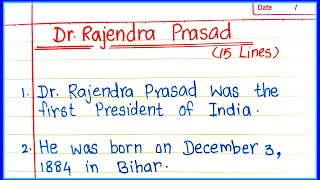 Date /
Dr. Rajendra Prasad
(15 Lines)
1. Dr. Rajendra Prasad was the
first President of India.
2. He was born on December 3,
1884 in Bihar.